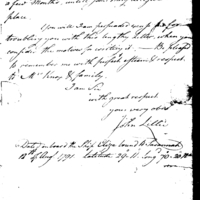 a few months, until
place.
You will I am persuaded excuse me for
troubling you with this lengthy letter, when you
consider the motives for writing it — Be pleased
to remember me with perfect esteem & respect
to Mrs King & family.
I am Sir
with great respect
your very obt
John
Date on board the Ship Hope bound to
1791 Latitude 29.11. Long